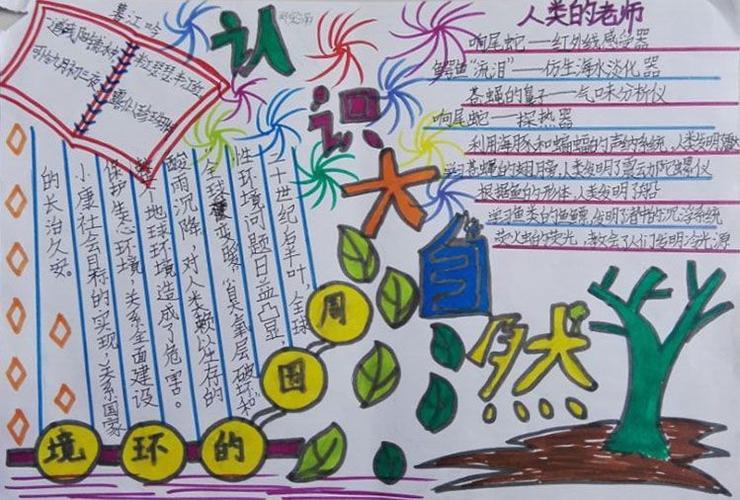 暮江吟
一道残阳铺水中
半江瑟瑟半江红
可怜九月初三夜
露似珍珠月似弓
认识大自然
人类的老师
响尾蛇——红外线感受器
鳄鱼“流泪”——仿生海水淡化器
苍蝇的鼻子——气味分析仪
响尾蛇——探热器
利用海豚和蝙蝠的声纳系统，人类发明了
学习苍蝇的翅膀，人类发明了震动陀螺仪
根据鱼的形体，人类发明了船
学习鱼类的鱼鳔，发明了潜艇的沉浮系统
萤火虫的荧光，教会了人们发明冷光源
周围的环境
二十世纪后半叶，全球
性环境问题日益凸显
全球变暖，臭氧层破坏和
酸雨沉降，对人类赖以生存的
整个地球环境造成了危害。
保护生态环境，关系全面建设
小康社会目标的实现，关系国家
的长治久安。